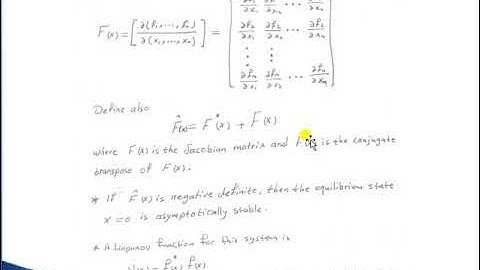 F(x) = [ ∂(f₁, ..., fₙ) / ∂(x₁, ..., xₙ) ] = [ ∂f₁/∂x₁ ∂f₁/∂x₂ ... ∂f₁/∂xₙ
∂f₂/∂x₁ ∂f₂/∂x₂ ... ∂f₂/∂xₙ
⋮ ⋮
∂fₙ/∂x₁ ∂fₙ/∂x₂ ... ∂fₙ/∂xₙ ]
Define also
F̂(x) = F*(x) + F(x)
where F(x) is the Jacobian matrix and is the conjugate
transpose of F(x).
* If F̂(x) is negative definite, then the equilibrium state
x = 0 is asymptotically stable.
* A Liapunov function for this system is
V(x) = f*(x) f(x)